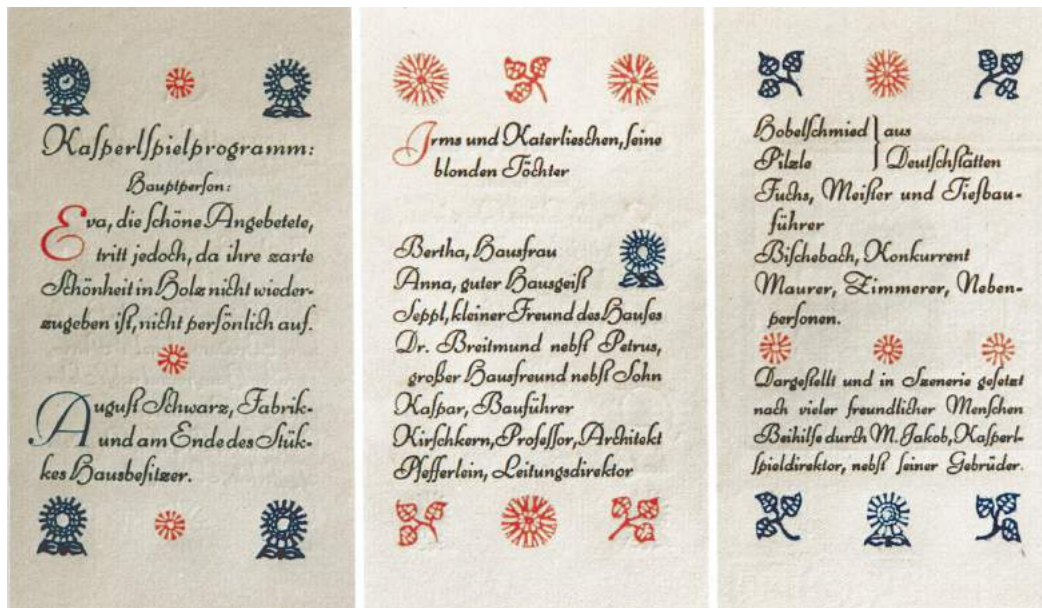 Kaſperlſpielprogramm:
Hauptperſon:
Eva, die ſchöne Angebetete,
tritt jedoch, da ihre zarte
Schönheit in Holz nicht wieder-
zugeben iſt, nicht perſönlich auf.
Auguſt Schwarz, Fabrik-
und am Ende des Stük-
kes Hausbeſitzer.
Irms und Katerlieschen, ſeine
blonden Töchter
Bertha, Hausfrau
Anna, guter Hausgeiſt
Seppl, kleiner Freund des Hauſes
Dr. Breitmund nebſt Petrus,
großer Hausfreund nebſt Sohn
Kaſpar, Bauführer
Kirſchkern, Profeſſor, Architekt
Pfefferlein, Leitungsdirektor
Hobelſchmied } aus
Pilzle Deutſchſtätten
Fuchs, Meiſter und Tiefbau-
führer
Biſchebach, Konkurrent
Maurer, Zimmerer, Neben-
perſonen.
Dargeſtellt und in Szenerie geſetzt
nach vieler freundlicher Menſchen
Beihilfe durch M. Jakob, Kaſperl-
ſpieldirektor, nebſt ſeiner Gebrüder.